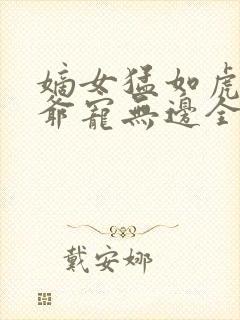 嫡女猛如虎
爺寵無邊全
戴安娜